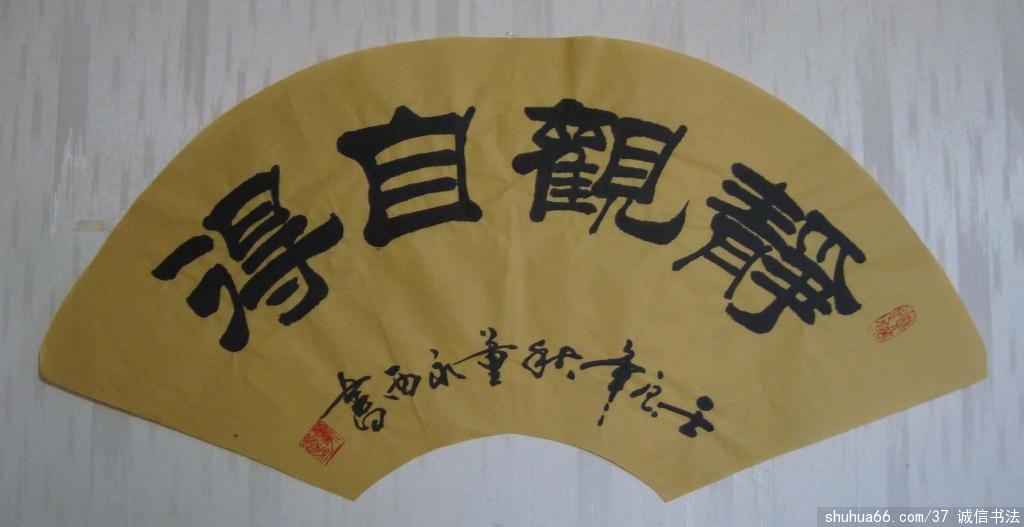 靜觀自得
壬辰年秋董永西書
shuhua66.com/37 诚信书法